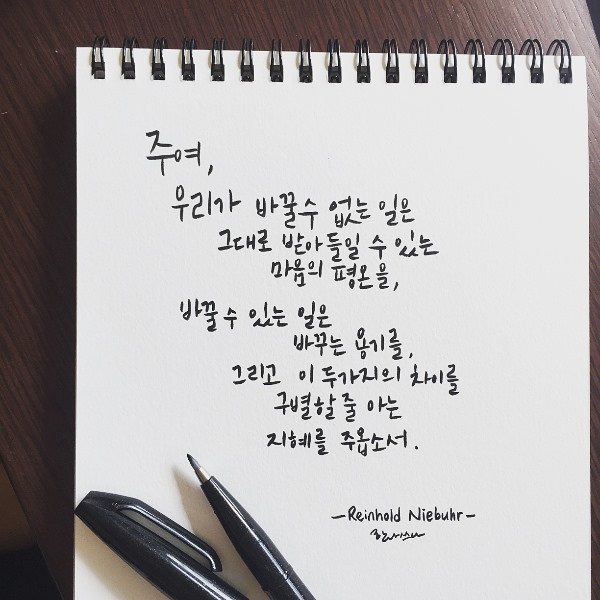 주여,
우리가 바꿀수 없는 일은
그대로 받아들일 수 있는
마음의 평온을,
바꿀 수 있는 일은
바꾸는 용기를,
그리고 이 두가지의 차이를
구별할 줄 아는
지혜를 주옵소서.
-Reinhold Niebuhr-